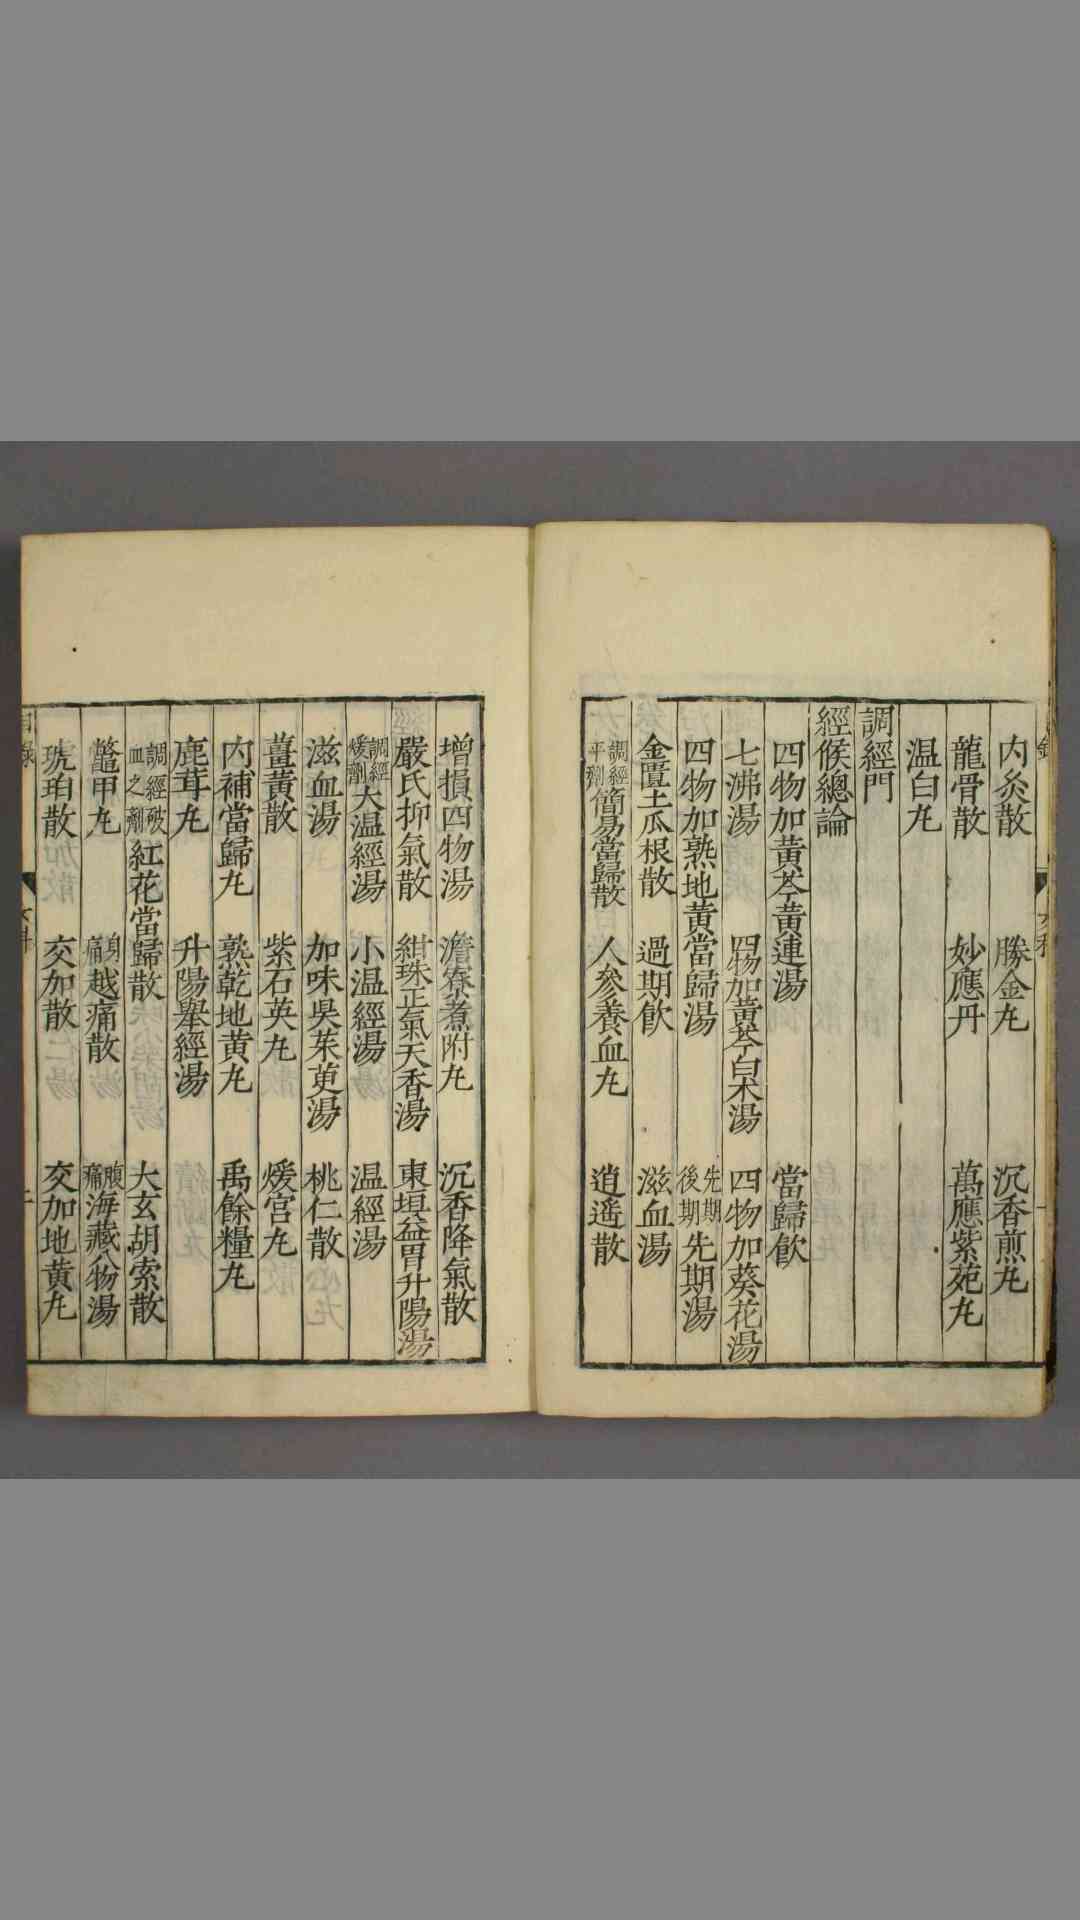 内灸散 勝金丸 沉香煎丸
龍骨散 妙應丹 萬應紫苑丸
温白丸
調經門
經候總論
四物加黄芩黄連湯 當歸飲
七沸湯 四物加黄芩白朮湯 四物加葵花湯
四物加熟地黄當歸湯 先期後期先期湯
金匱土瓜根散 過期飲 滋血湯
調經平劑簡易當歸散 人參養血丸 逍遥散
增損四物湯 澹寮煮附丸 沉香降氣散
嚴氏抑氣散 紺珠正氣天香湯 東垣益胃升陽湯
調經煖劑大温經湯 小温經湯 温經湯
滋血湯 加味吳茱萸湯 桃仁散
薑黄散 紫石英丸 煖宫丸
内補當歸丸 熟乾地黄丸 禹餘糧丸
鹿茸丸 升陽舉經湯
調經破血之劑紅花當歸散 大玄胡索散
鼈甲丸 身痛越痛散 腹痛海藏八物湯
琥珀散 交加散 交加地黄丸